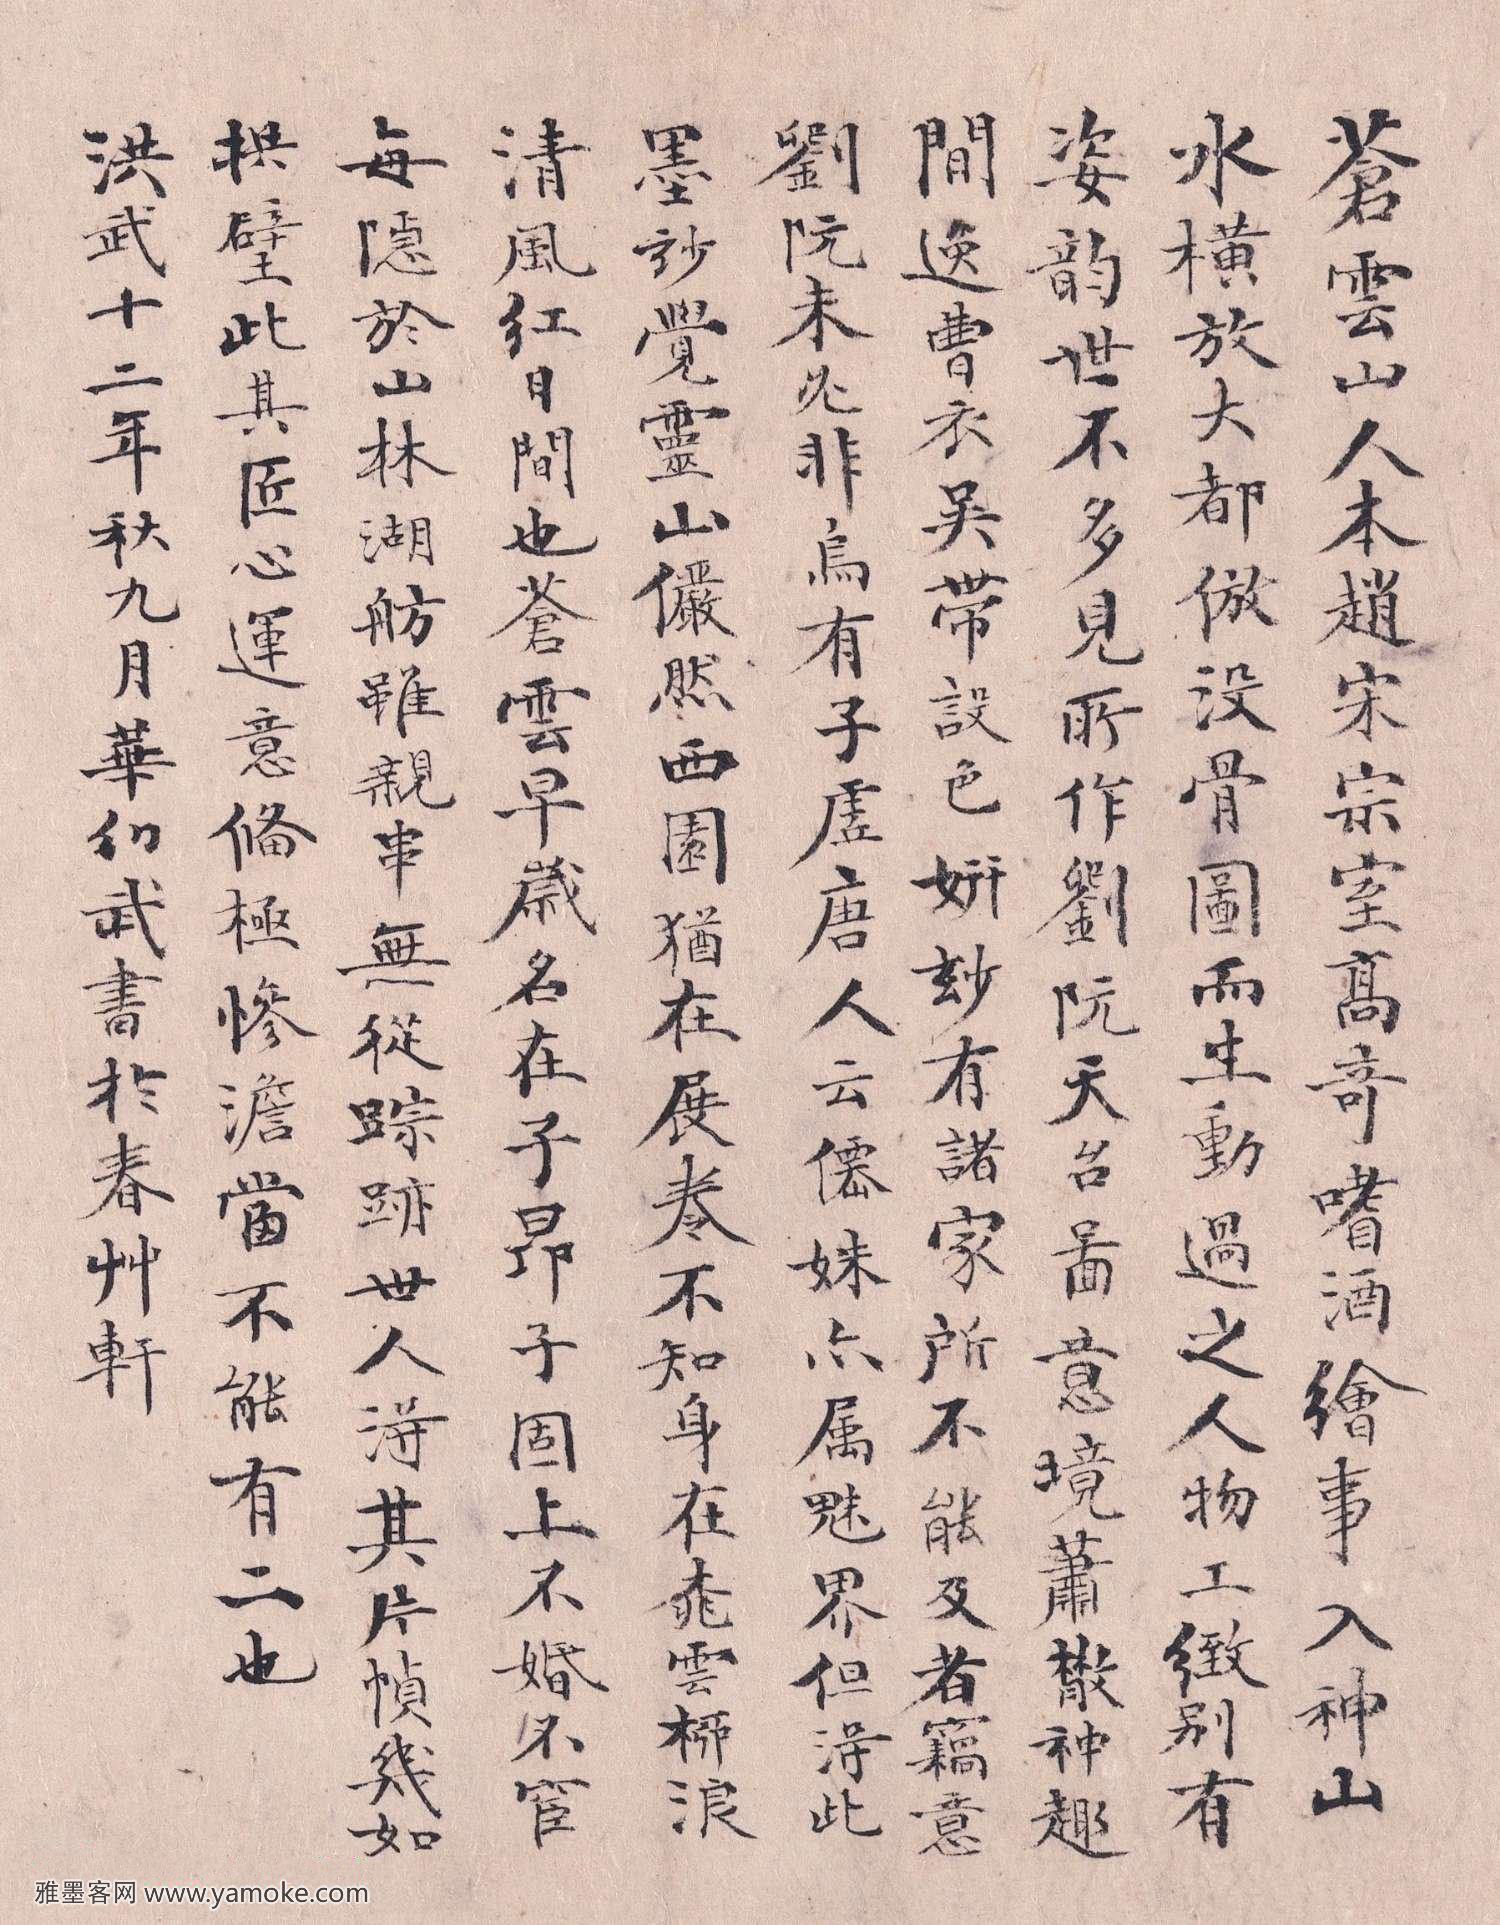 蒼雲山人本趙宋宗室高奇嗜酒繪事入神山
水橫放大都倣沒骨圖而生動過之人物工緻别有
姿韵世不多見所作劉阮天台啚意境蕭散神趣
間逸曹衣吳帶設色妍玅有諸家所不能及者竊意
劉阮未必非烏有子虛唐人云僊姝亦屬魅界但淂此
墨玅覺靈山儼然西園猶在展卷不知身在桃雲栁浪
清風紅日間也蒼雲早歲名在子昂子固上不婚不宦
每隱於山林湖舫雖親串無從踪跡世人淂其片幀幾如
拱璧此其匠心運意俻極慘澹當不能有二也
洪武十二年秋九月華幻武書於春艸軒
雅墨客网 www.yamoke.com